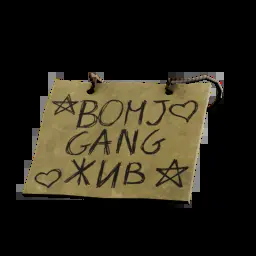 BOMJ
GANG
ЖИВ